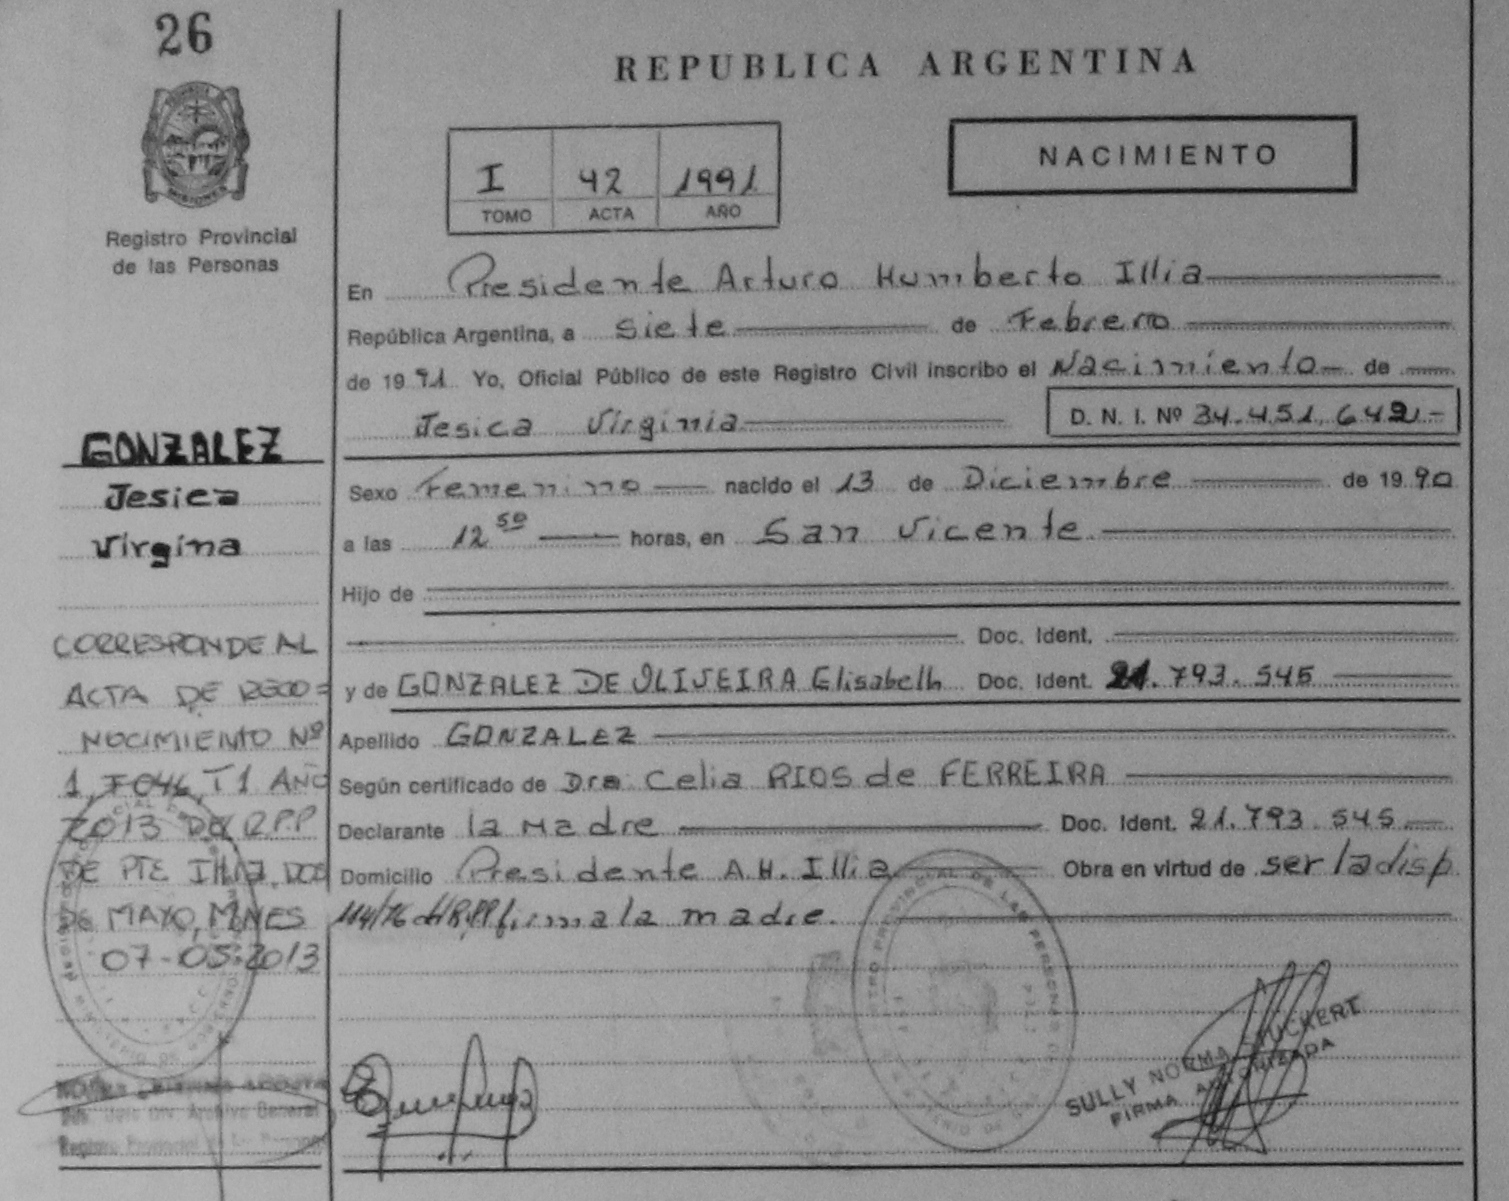 26
REPUBLICA ARGENTINA
MISIONES
Registro Provincial
de las Personas
I 42 1991
TOMO ACTA AÑO
NACIMIENTO
En Presidente Arturo Humberto Illia
República Argentina, a siete de Febrero
de 1991 Yo, Oficial Público de este Registro Civil inscribo el Nacimiento de
Jesica Virginia D. N. I. Nº 34.451.642.-
Sexo Femenino nacido el 13 de Diciembre de 1990
a las 12 50 horas, en San Vicente
Hijo de
Doc. Ident.
y de GONZALEZ DE OLIVEIRA Elisabeth Doc. Ident. 21.793.545
Apellido GONZALEZ
Según certificado de Dra. Celia RIOS de FERREIRA
Declarante la Madre Doc. Ident. 21.793.545
Domicilio Presidente A.H. Illia Obra en virtud de ser la disp
114/76 del R.P.P. firma la madre.
GONZALEZ
Jesica
Virgina
CORRESPONDE AL
ACTA DE RECO=
NOCIMIENTO Nº
1, T1 AÑO
2013 DEL R.P.P
DE PTE ILLIA, DOS
DE MAYO, MNES
07-05-2013
REGISTRO PROVINCIAL DE LAS PERSONAS
SULLY NORMA STUCKERT
FIRMA AUTORIZADA
Archivo General